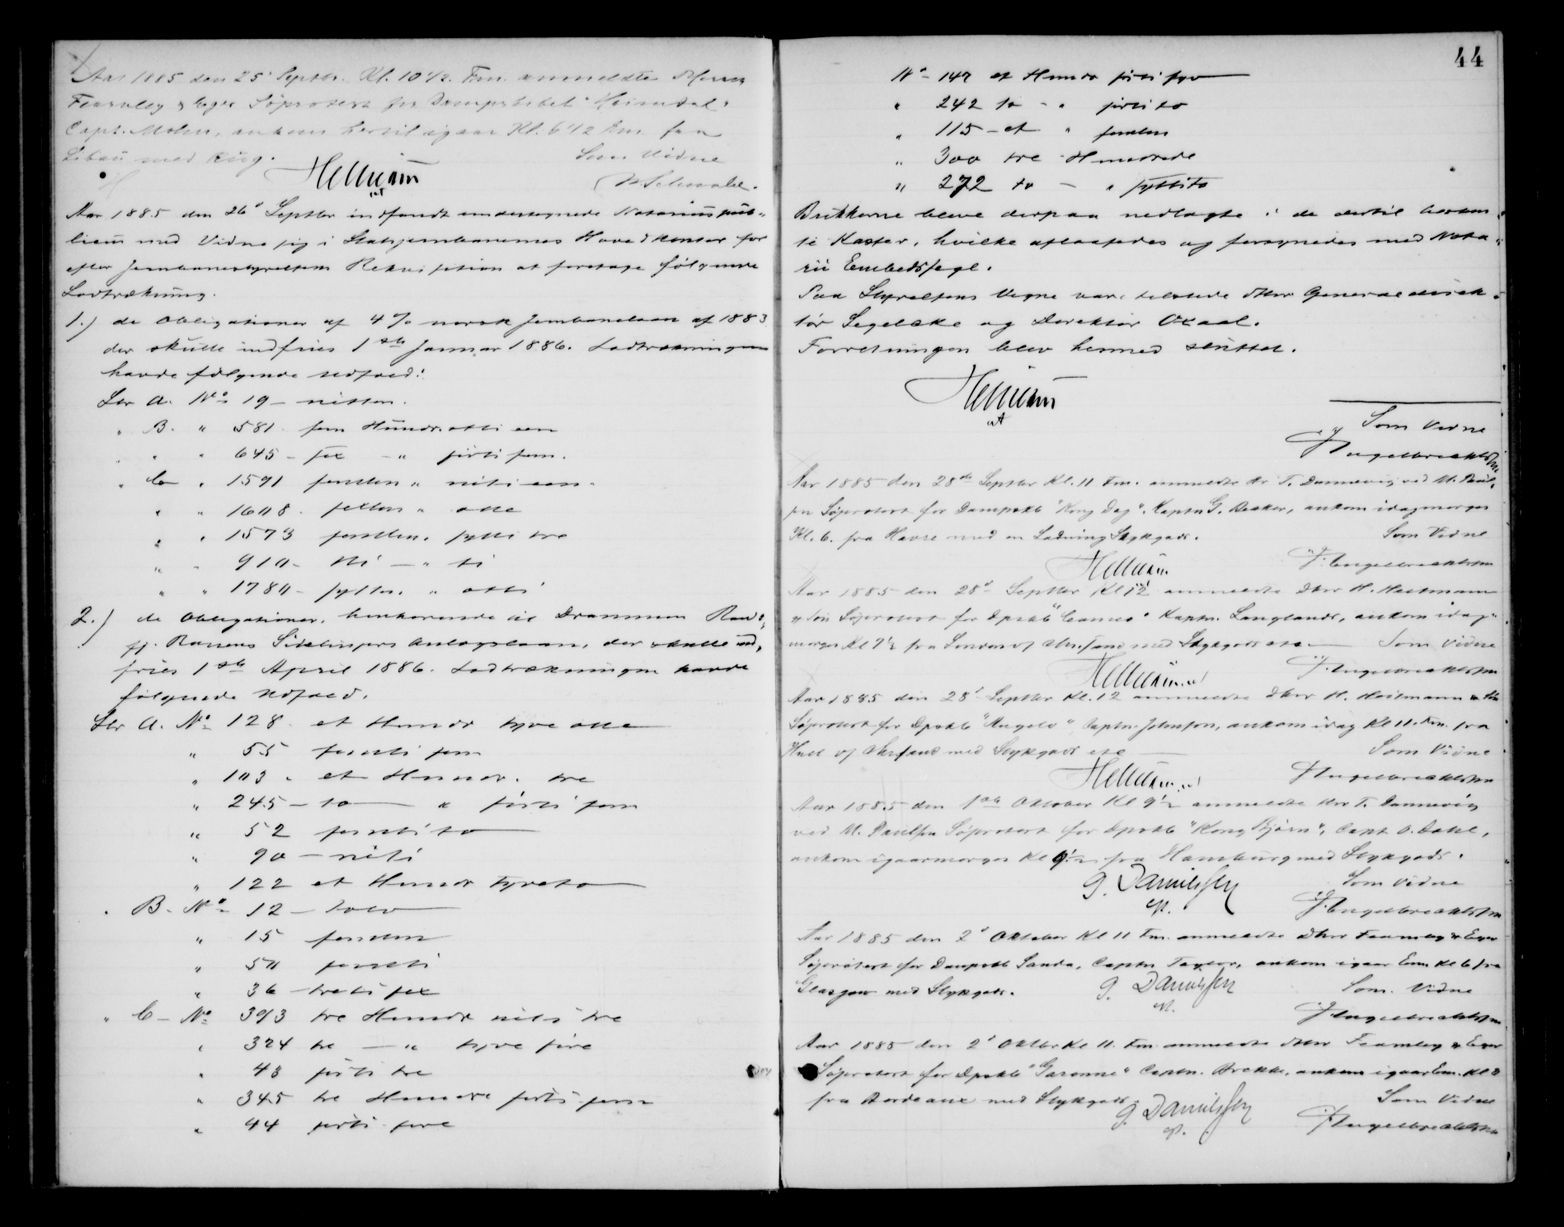 Aar 1885 den 25' Septbr. Kl. 10 1/2 Fm. anmeldte Herrer
Fearnley & Eger Söprotest for Dampskibet "Heimdal"
Capt. Mohn, ankom hertil igaar Kl. 6 1/2 Em. fra
Libau med Rug.
Som Vidne
Aar 1885 den 26' Septbr indfandt undertegnede Notarius pub-
licus med Vidne sig i Statsjernbanernes Hovedkontor for
efter Jernbanestyrelsens Rekvisition at foretage følgende
Lodtrækning.
1.) de Obligationer af 4% norsk Jernbanelaan af 1883
der skulle indfries 1ste Januar 1886. Lodtrækningen
havde følgende Udfald:
Litr A. No 19 - nitten.
" B. " 581. fem Hundr. otti een
" " 645 - sex - " förti fem.
" C " 1591 femten " niti een.
" " 1608. sexten " otte
" " 1573 femten. sytti tre
" " 910 - ni - " ti
" " 1780 - sytten. " otti
2.) de Obligationer, henhørende til Drammen Rand-
fj. Banens Sidelinjers Anlægslaan, der skulle ind-
fries 1ste April 1886. Lodtrækningen havde
følgende Udfald.
Litr A. No 128. et Hundr tyve otte
" 55 femti fem
" 103. et Hundr. tre
" 245 - to " förti fem
" 52 femti to
" 90 - niti
" 122 et Hundr tyve to
" B. No 12 - tolv
" 15 femten
" 50 femti
" 36 treti sex
" C - No 393 tre Hundr niti tre
" 324 tre - " tyve fire
" 43 förti tre
" 345 tre Hundre förti fem
" 44 förti fire
44
No 147 et Hundr förti syv
" 242 to - " förti to
" 115 - et " femten
" 300 tre Hundrede
" 272 to - " sytti to
Brikkerne bleve derpaa nedlagte i de dertil bestem-
te Kasser, hvilke aflaasedes og forsynedes med Nota-
rii Embedssegl.
Paa Styrelsens Vegne var tilstede Hrr Generaldirek-
tör Segelcke og Direktör Oxaal.
Forretningen blev hermed sluttet.
Som Vidne
Engelbrechtsen
Aar 1885 den 28de Septbr Kl. 11 Fm. anmeldte Hr T. Dannevig ved M. Paul-
sen Söprotest for Dampskb "Kong Dag". Kaptn G. Becker, ankom idagmorges
Kl. 6. fra Havre med en Ladning Stykgods.
Som Vidne
Engelbrechtsen
Aar 1885 den 28' Septbr Kl 12 anmeldte Dhrr H. Heitmann
& Sön Söprotest for Dpskb Kaptn. Langlands, ankom idag-
morges Kl 7 1/2 fra London of Chrsand med Stykgods etc. Som Vidne
Engelbrechtsen
Aar 1885 den 28' Septbr Kl. 12 anmeldte Dhrr H. Heitmann & Sön
Söprotest for Dpskb "Angelo" Captn. Johnson, ankom idag Kl 11. Fm. fra
Hull of Chrsand med Stykgods etc
Som Vidne
Engelbrechtsen
Aar 1885 den 1ste Oktober Kl 9 1/2 anmeldte Hrr T. Dannevig
ved M. Paulsen Söprotest for Dpskb "Kong Bjørn", Capt. O. Dahl,
ankom igaarmorges Kl 9 1/2 fra Hamburg med Stykgods.
G. Danielssen
cst.
Som Vidne
Engelbrechtsen
Aar 1885 den 2' Oktober Kl 11 Fm. anmeldte Dhrr Fearnley & Eger
Söprotest for Dampskb Sanda, Captn Taylor, ankom igaar Em. Kl 6 fra
Glasgow med Stykgods.
G. Danielssen
cst.
Som Vidne
Engelbrechtsen
Aar 1885 den 2' Oktbr Kl 11. Fm anmeldte Dhrr Fearnley & Eger
Söprotest for Dpskb "Garonne" Captn. Brekke, ankom igaar Em. Kl 8
fra Bordeaux med Stykgods.
G. Danielssen
cst.
Som Vidne
Engelbrechtsen